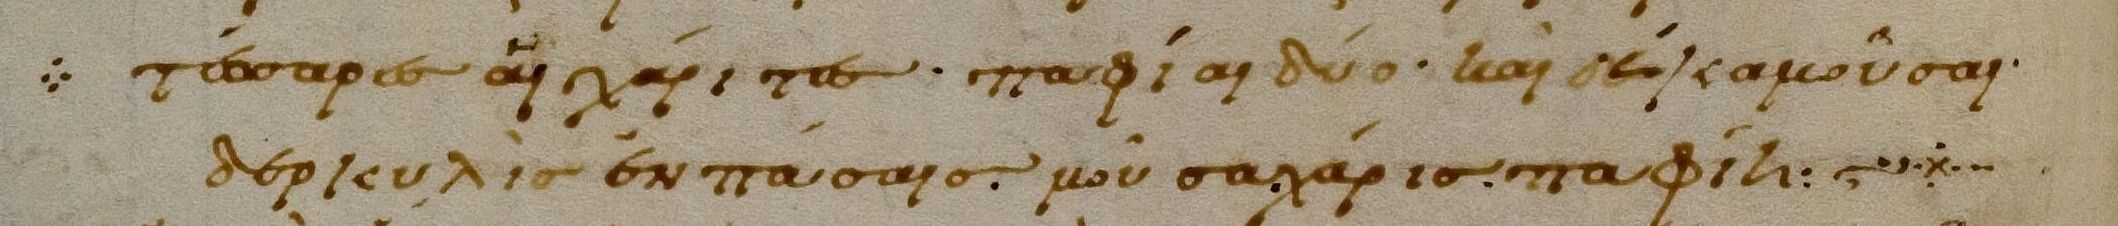 ⁘ τέσσαρες αἱ χάριτες· παφίαι δύο· καὶ δέκα μοῦσαι·
δερκυλὶς ἐν πάσαις· μοῦσα χάρις παφίη: